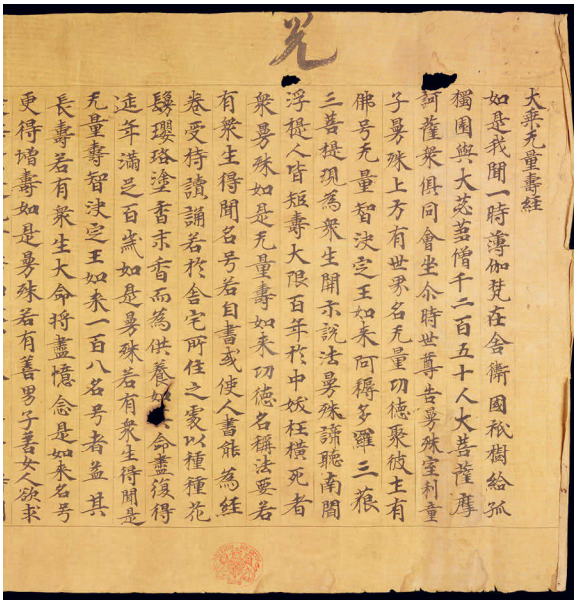 兊
大乘无量壽経
如是我聞一時薄伽梵在舍衛國祇樹給孤
獨園與大苾蒭僧千二百五十人大菩薩摩
訶薩衆俱同會坐尒時世尊告曼殊室利童
子曼殊上方有世界名无量功徳聚彼土有
佛号无量智決定王如来阿耨多羅三藐
三菩提現為衆生開示說法曼殊諦聽南閻
浮提人皆短壽大限百年於中殀枉横死者
衆曼殊如是无量壽如来功徳名稱法要若
有衆生得聞名号若自書或使人書能為経
卷受持讀誦若於舍宅所住之處以種種花
鬘瓔珞塗香末香而為供養如命盡復得
延年滿足百歳如是曼殊若有衆生得聞是
无量壽智決定王如来一百八名号者益其
長壽若有衆生大命将盡憶念是如来名号
更得增壽如是曼殊若有善男子善女人欲求